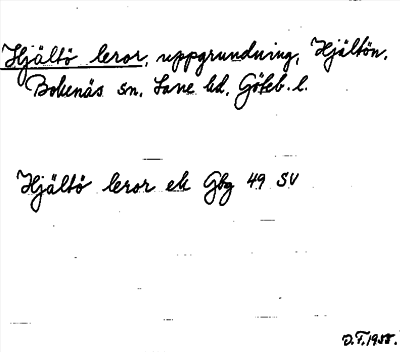 Hjältö leror, uppgrundning, Hjältön,
Bokenäs sn, Lane hd, Göteb. l.
Hjältö leror ek Gbg 49 SV
D.F. 1958.